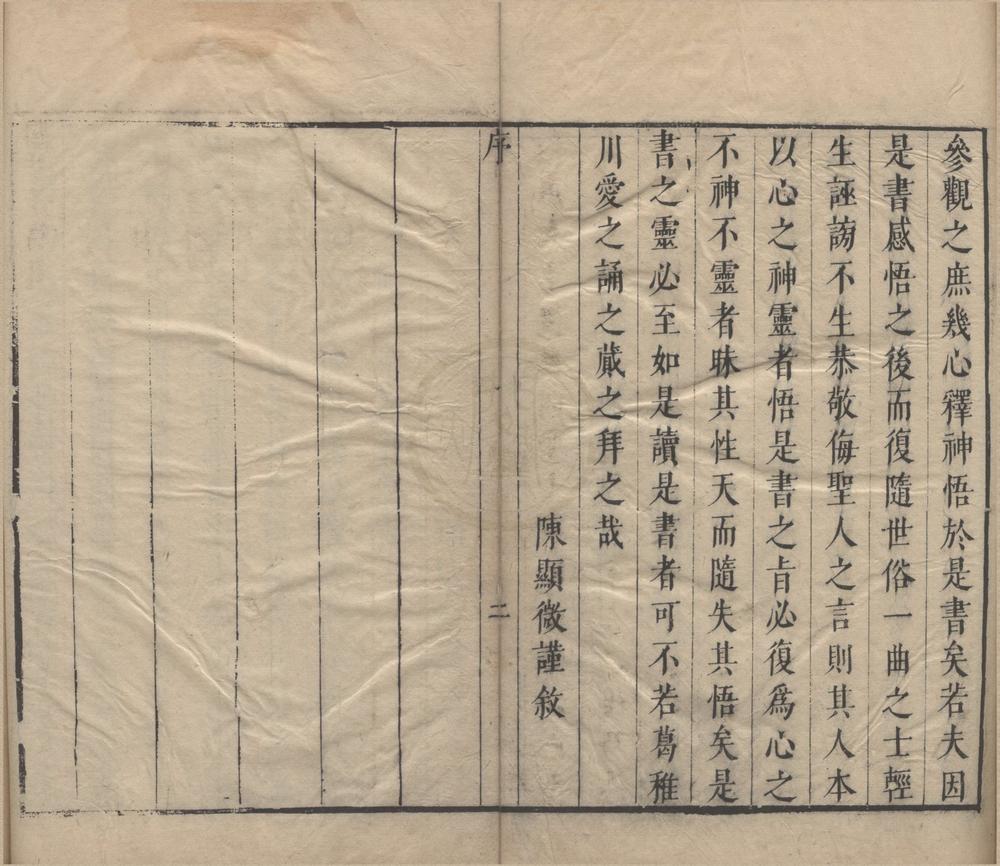 參觀之庶幾心釋神悟於是書矣若夫因
是書感悟之後而復隨世俗一曲之士輕
生誣謗不生恭敬侮聖人之言則其人本
以心之神靈者悟是書之旨必復爲心之
不神不靈者昧其性天而隨失其悟矣是
書之靈必至如是讀是書者可不若葛稚
川愛之誦之藏之拜之哉
陳顯微謹敘
序
二